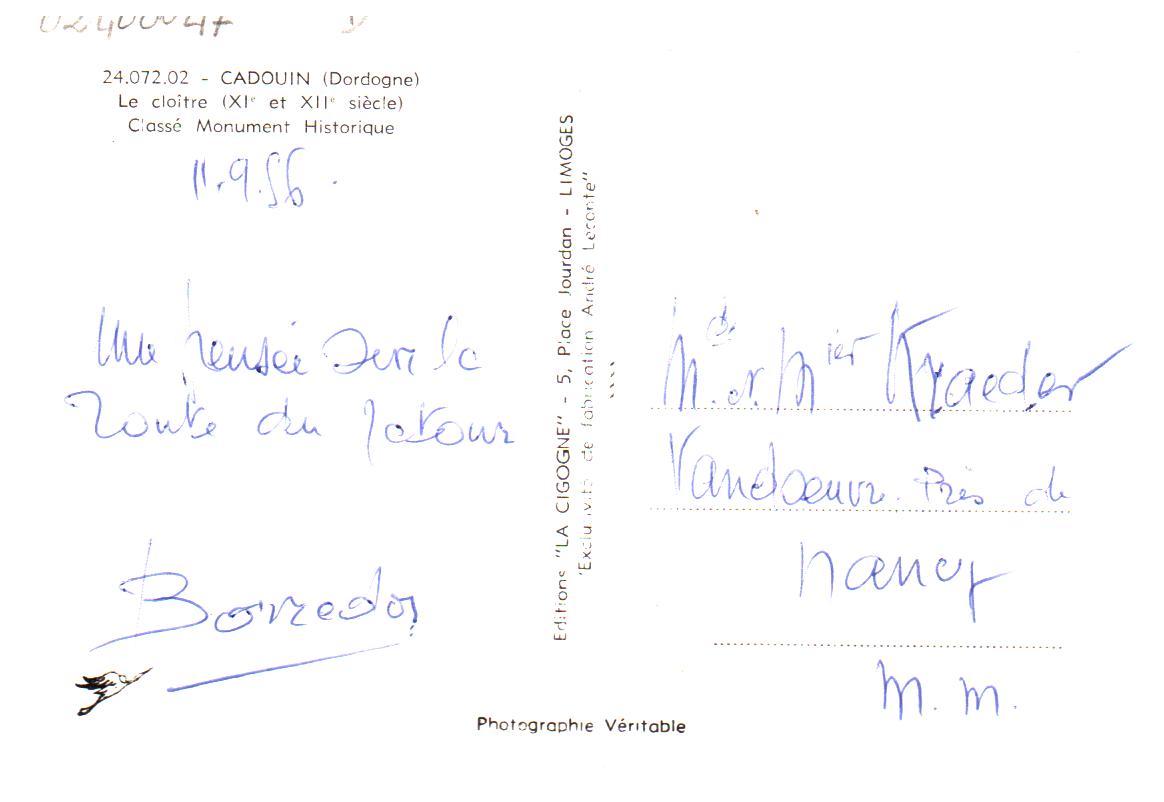 24.072.02 - CADOUIN (Dordogne)
Le cloître (XIe et XIIe siècle)
Classé Monument Historique
11.9.56.
Une pensée sur la
route du retour
Editions "LA CIGOGNE" - 5, Place Jourdan - LIMOGES
"Exclusivité de fabrication André Leconte"
M. et M Kraeder
Vandœuvre. Près de
Nancy
M. M.
Photographie Véritable